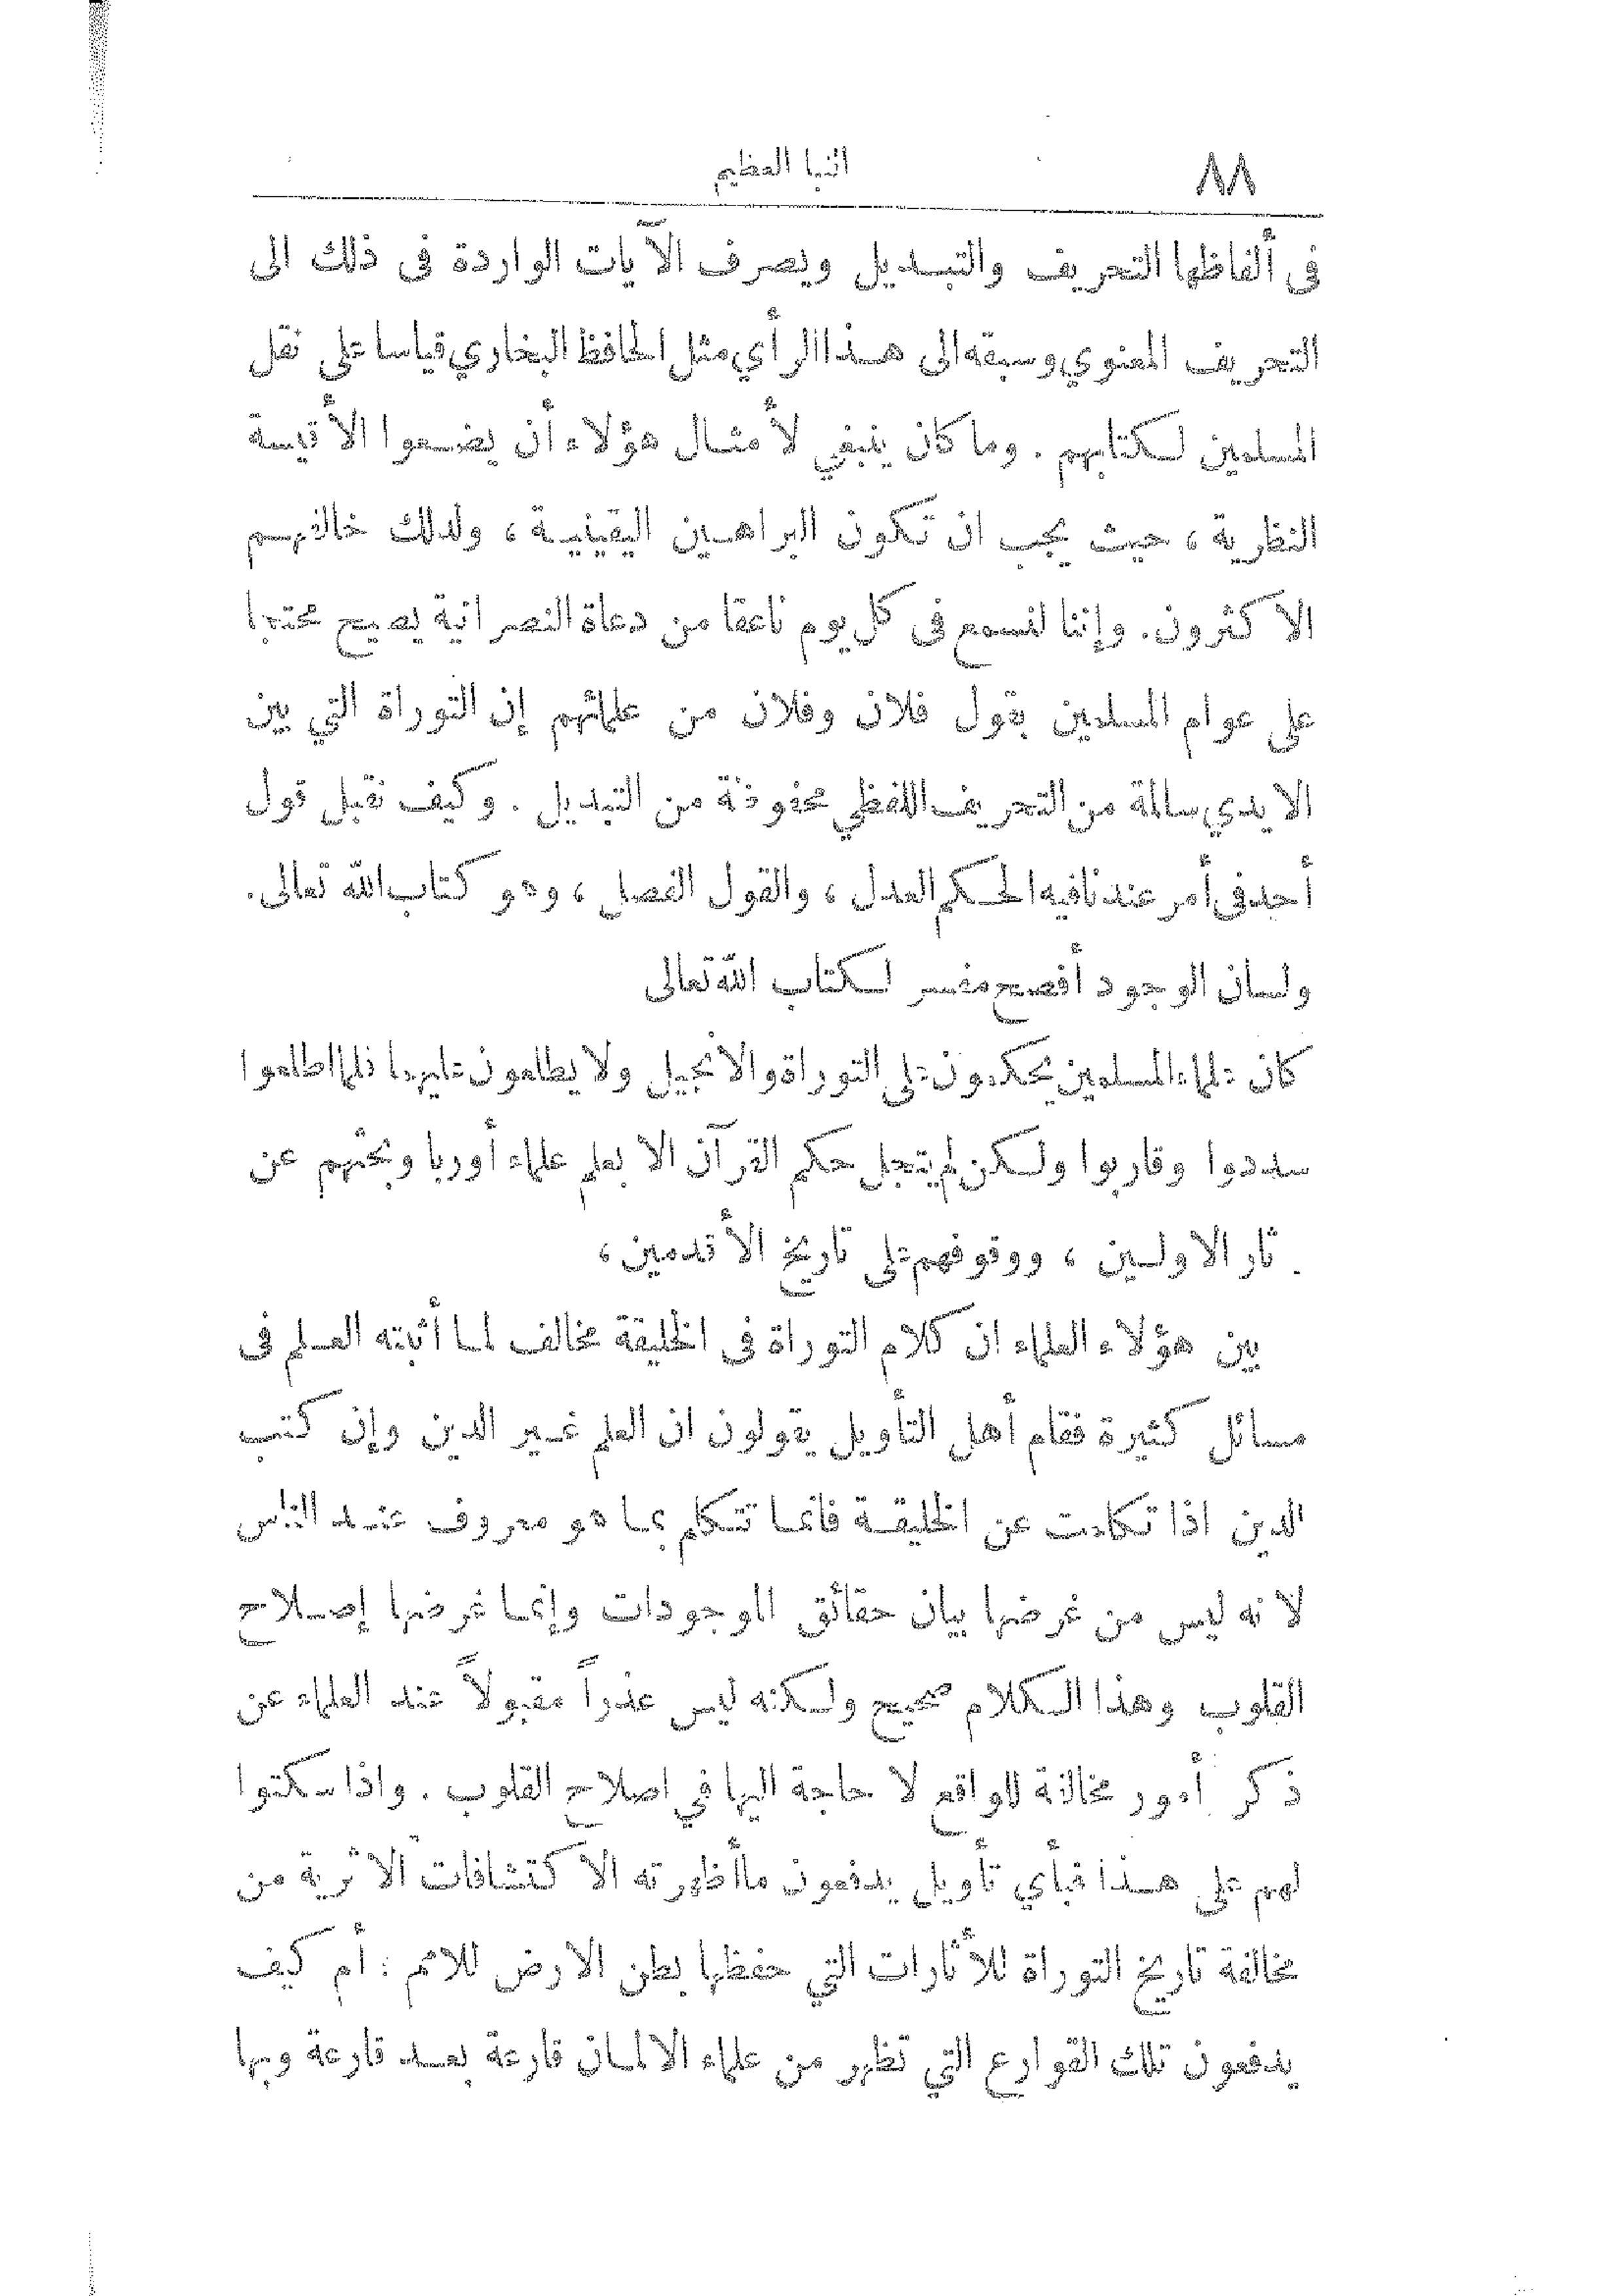 ٨٨
النبأ العظيم
فى ألفاظها التحريف والتبديل ويصرف الآيات الواردة فى ذلك الى
التحريف المعنوي وسبقه الى هذا الرأي مثل الحافظ البخاري قياسا على نقل
المسلمين لكتابهم . وما كان ينبغي لأمثال هؤلاء أن يضعوا الأقيسة
النظرية ، حيث يجب ان تكون البراهين اليقينية ، ولذلك خالفهم
الاكثرون. وإننا لنسمع فى كل يوم ناعقا من دعاة النصرانية يصيح محتجا
على عوام المسلمين بقول فلان وفلان من علمائهم إن التوراة التي بين
الايدي سالمة من التحريف اللفظي محفوظة من التبديل . وكيف نقبل قول
أحد فى أمر عندنا فيه الحكم العدل ، والقول الفصل ، وهو كتاب الله تعالى.
ولسان الوجود أفصح مفسر لكتاب الله تعالى
كان علماء المسلمين يحكمون على التوراة والانجيل ولا يطلعون عليهما فلما اطلعوا
سددوا وقاربوا ولكن لم يتجل حكم القرآن الا بعلم علماء أوربا وبحثهم عن
ثار الاولين ، ووقوفهم على تاريخ الأقدمين ،
بين هؤلاء العلماء ان كلام التوراة فى الخليقة مخالف لما أثبته العلم فى
مسائل كثيرة فقام أهل التأويل يقولون ان العلم غير الدين وإن كتب
الدين اذا تكلمت عن الخليقة فانما تتكلم بما هو معروف عند الناس
لانه ليس من غرضها بيان حقائق الموجودات وإنما غرضها إصلاح
القلوب وهذا الكلام صحيح ولكنه ليس عذراً مقبولاً عند العلماء عن
ذكر أمور مخالفة للواقع لا حاجة اليها في اصلاح القلوب . واذا سكتوا
لهم على هذا فبأي تأويل يدفعون ما أظهرته الاكتشافات الاثرية من
مخالفة تاريخ التوراة للأثارات التي حفظها بطن الارض للامم : أم كيف
يدفعون تلك القوارع التي تظهر من علماء الالمان قارعة بعد قارعة وبها